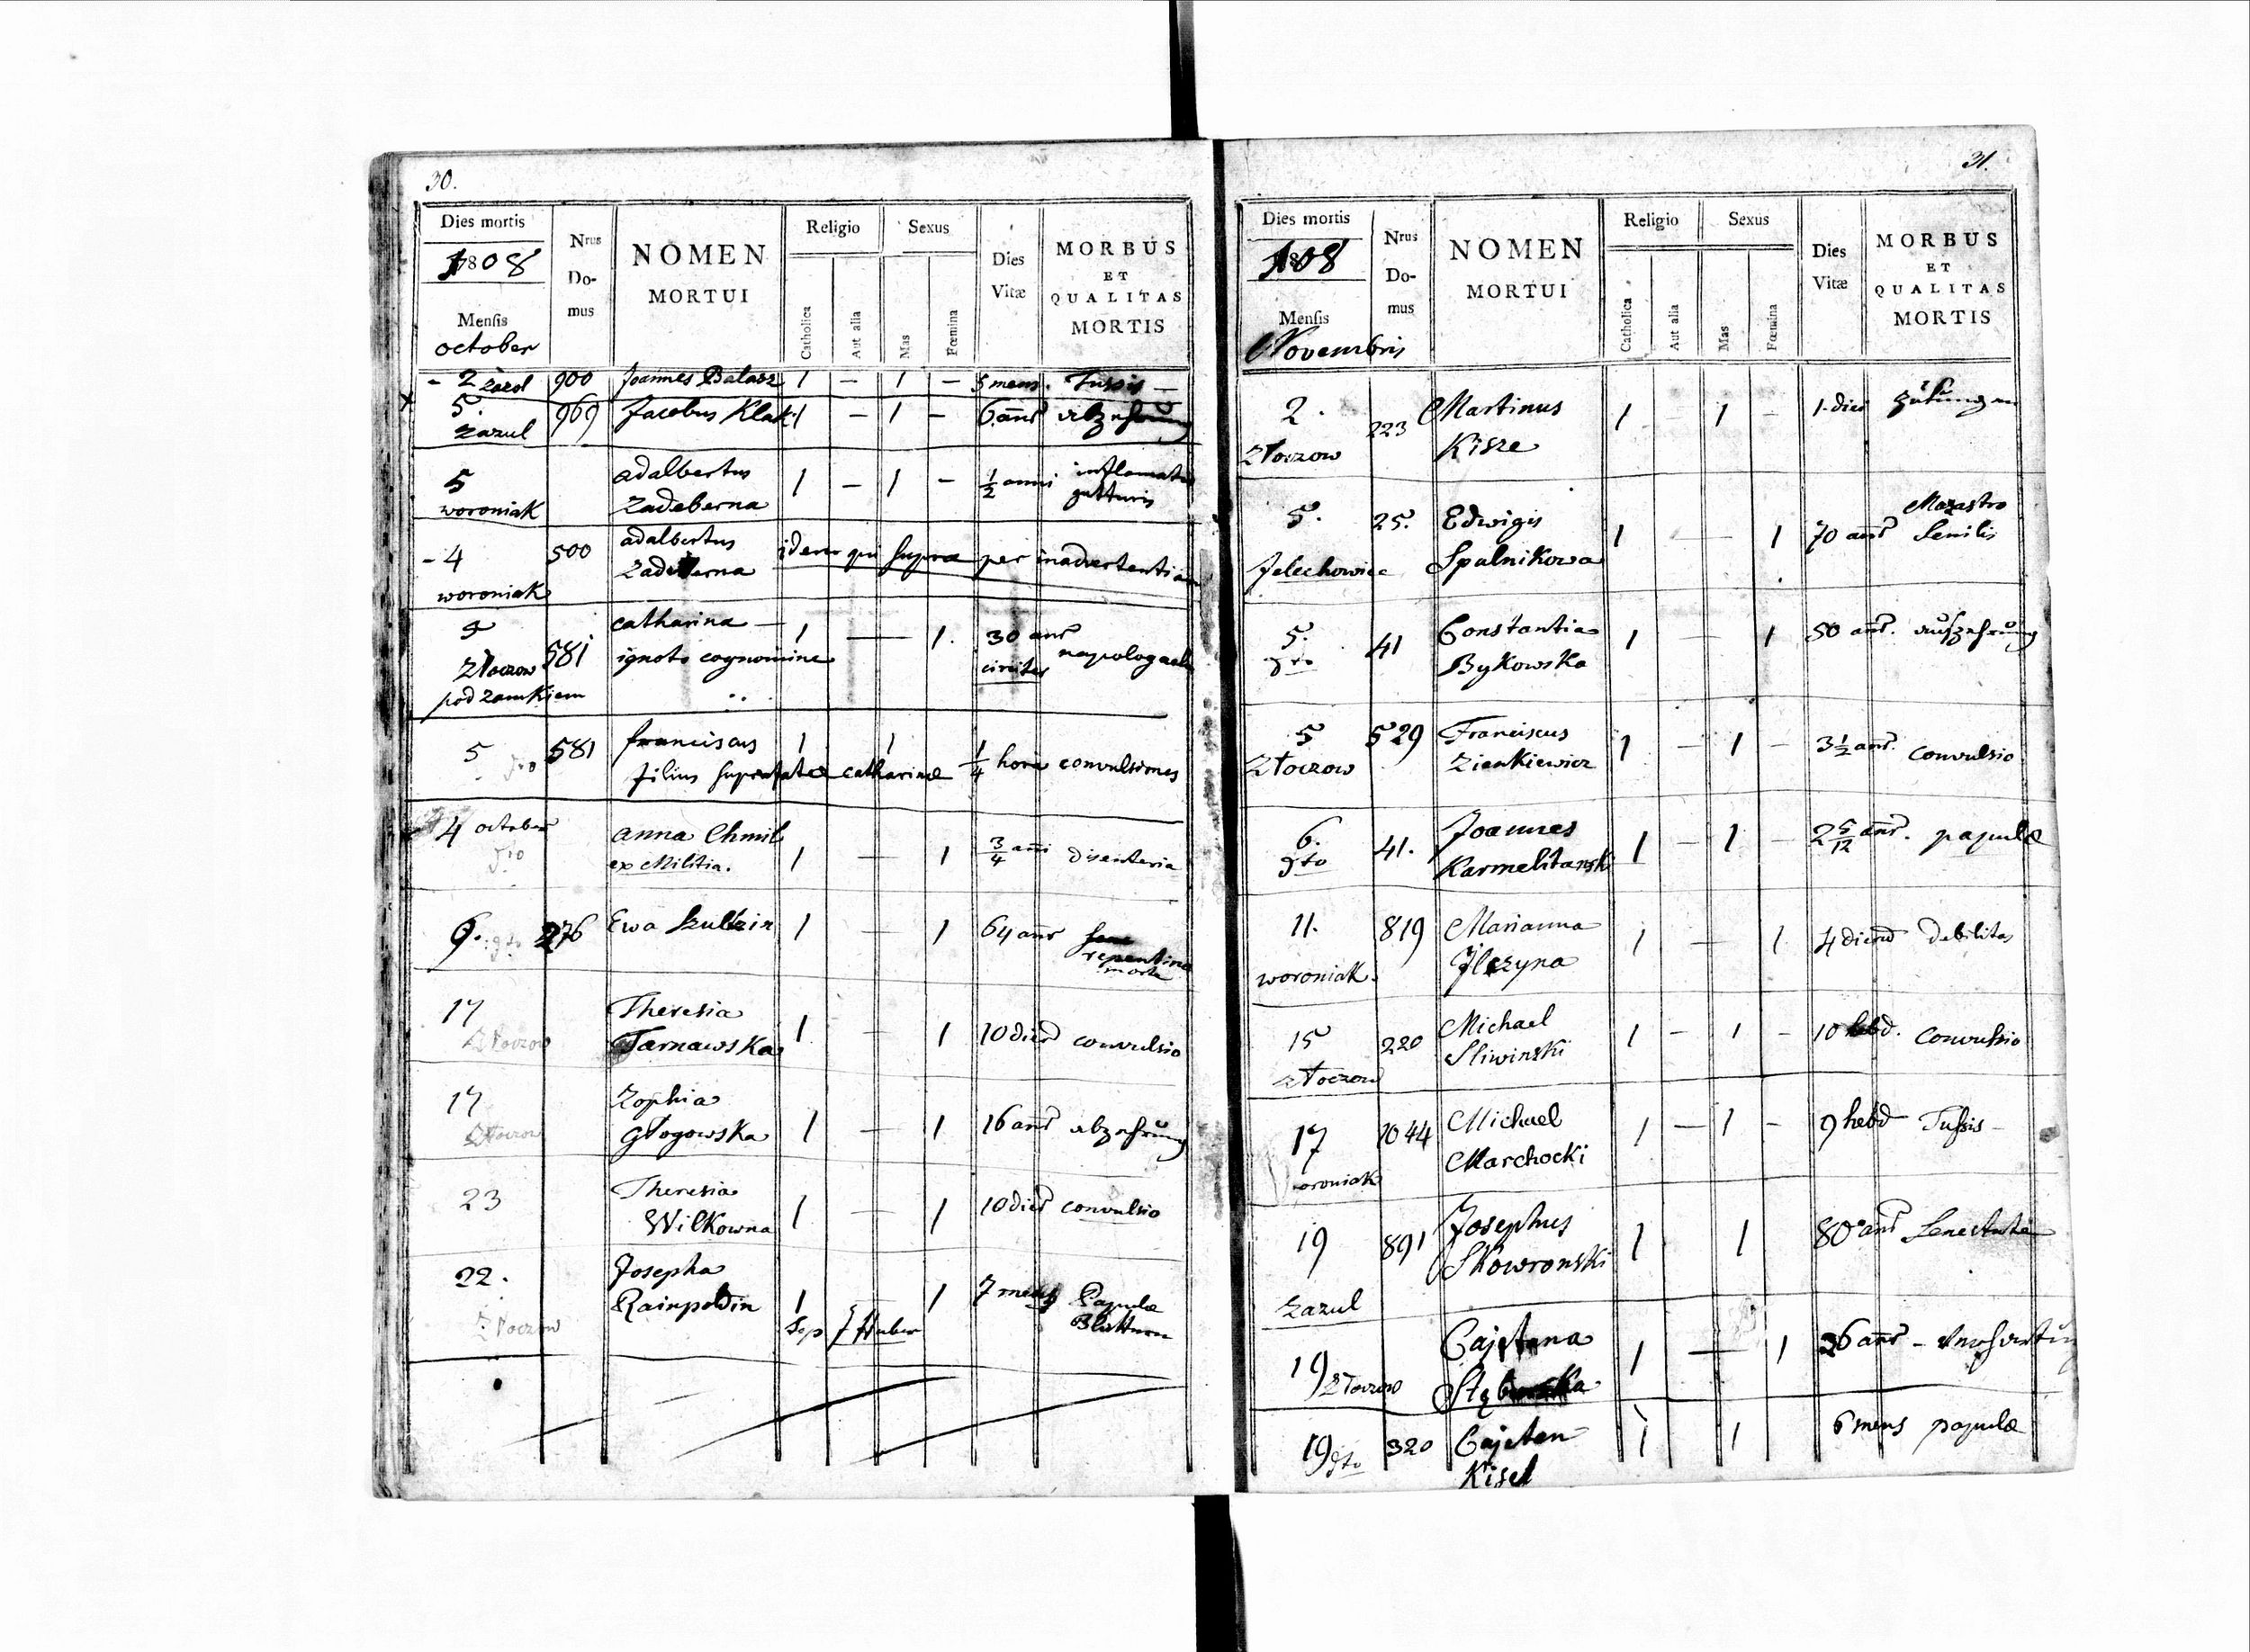 30.
Dies mortis
1808
Mensis
october
Nrus
Do-
mus
NOMEN
MORTUI
Religio
Catholica
Aut alia
Sexus
Mas
Fœmina
Dies
Vitæ
MORBUS
ET
QUALITAS
MORTIS
- 2 zazul 900 Joannes Balasz 1 — 1 — 5 mens. Tussis —
5. zazul 969 Jacobus Klak 1 — 1 — 6 anñ abzehrung
5 adalbertus 1 — 1 — ½ anni
woroniak Zadeberna gutturis
- 4 500 adalbertus idem qui supra per inadvertentiam
woroniak
9 581 catharina — 1 — 1. 30 anñ
Złoczow ignoto cognomine circiter
pod zamkiem
5 581 franciscus 1 1 ¼ hora convulsiones
dto filius supra catharinæ
4 october anna Chmil 1 — 1 ¾ anñi disenteria
dto ex Militia.
9. dto 276 Ewa 1 — 1 64 anñ repentina
morte
17 Theresia 1 — 1 10 dier convulsio
Złoczow Tarnawska
17 Zophia 1 — 1 16 anñ abzehrung
Złoczow Głogowska
23 Theresia 1 — 1 10 dier convulsio
Wilkowna
22. Josepha 1 1 7 mens Papulæ
Złoczow Rainpoldin Sep J Huber Blattern
31.
Dies mortis
1808
Mensis
Novembris
Nrus
Do-
mus
NOMEN
MORTUI
Religio
Catholica
Aut alia
Sexus
Mas
Fœmina
Dies
Vitæ
MORBUS
ET
QUALITAS
MORTIS
2. 223 Martinus 1 — 1 — 1. diei
Złoczow Kisze
5. 25. Edwigis 1 — 1 70 anñ
Jelechowice Spalnikowa Senilis
5. 41 Constantia 1 — 1 50 anñ. auszehrung
dto Bykowska
5 529 Franciscus 1 — 1 — 3½ anñ. convulsio
Złoczow Zienkiewicz
6. 41. Joannes 1 — 1 — 2 5/12 anñ. papulæ
dto Karmelitanski
11. 819 Marianna 1 — 1 4 dierū debilitas
woroniak.
15 220 Michael 1 — 1 — 10 hebd. convulsio
Złoczow Sliwinski
17 1044 Michael 1 — 1 — 9 hebd Tussis —
woroniak Marchocki
19 891 Josephus 1 1 80 anñ Senectute
Zazul Skowronski
19 Cajetana 1 — 1 26 anñ —
Złoczow
19 320 Cajetan 1 1 6 mens papulæ
dto Kisel